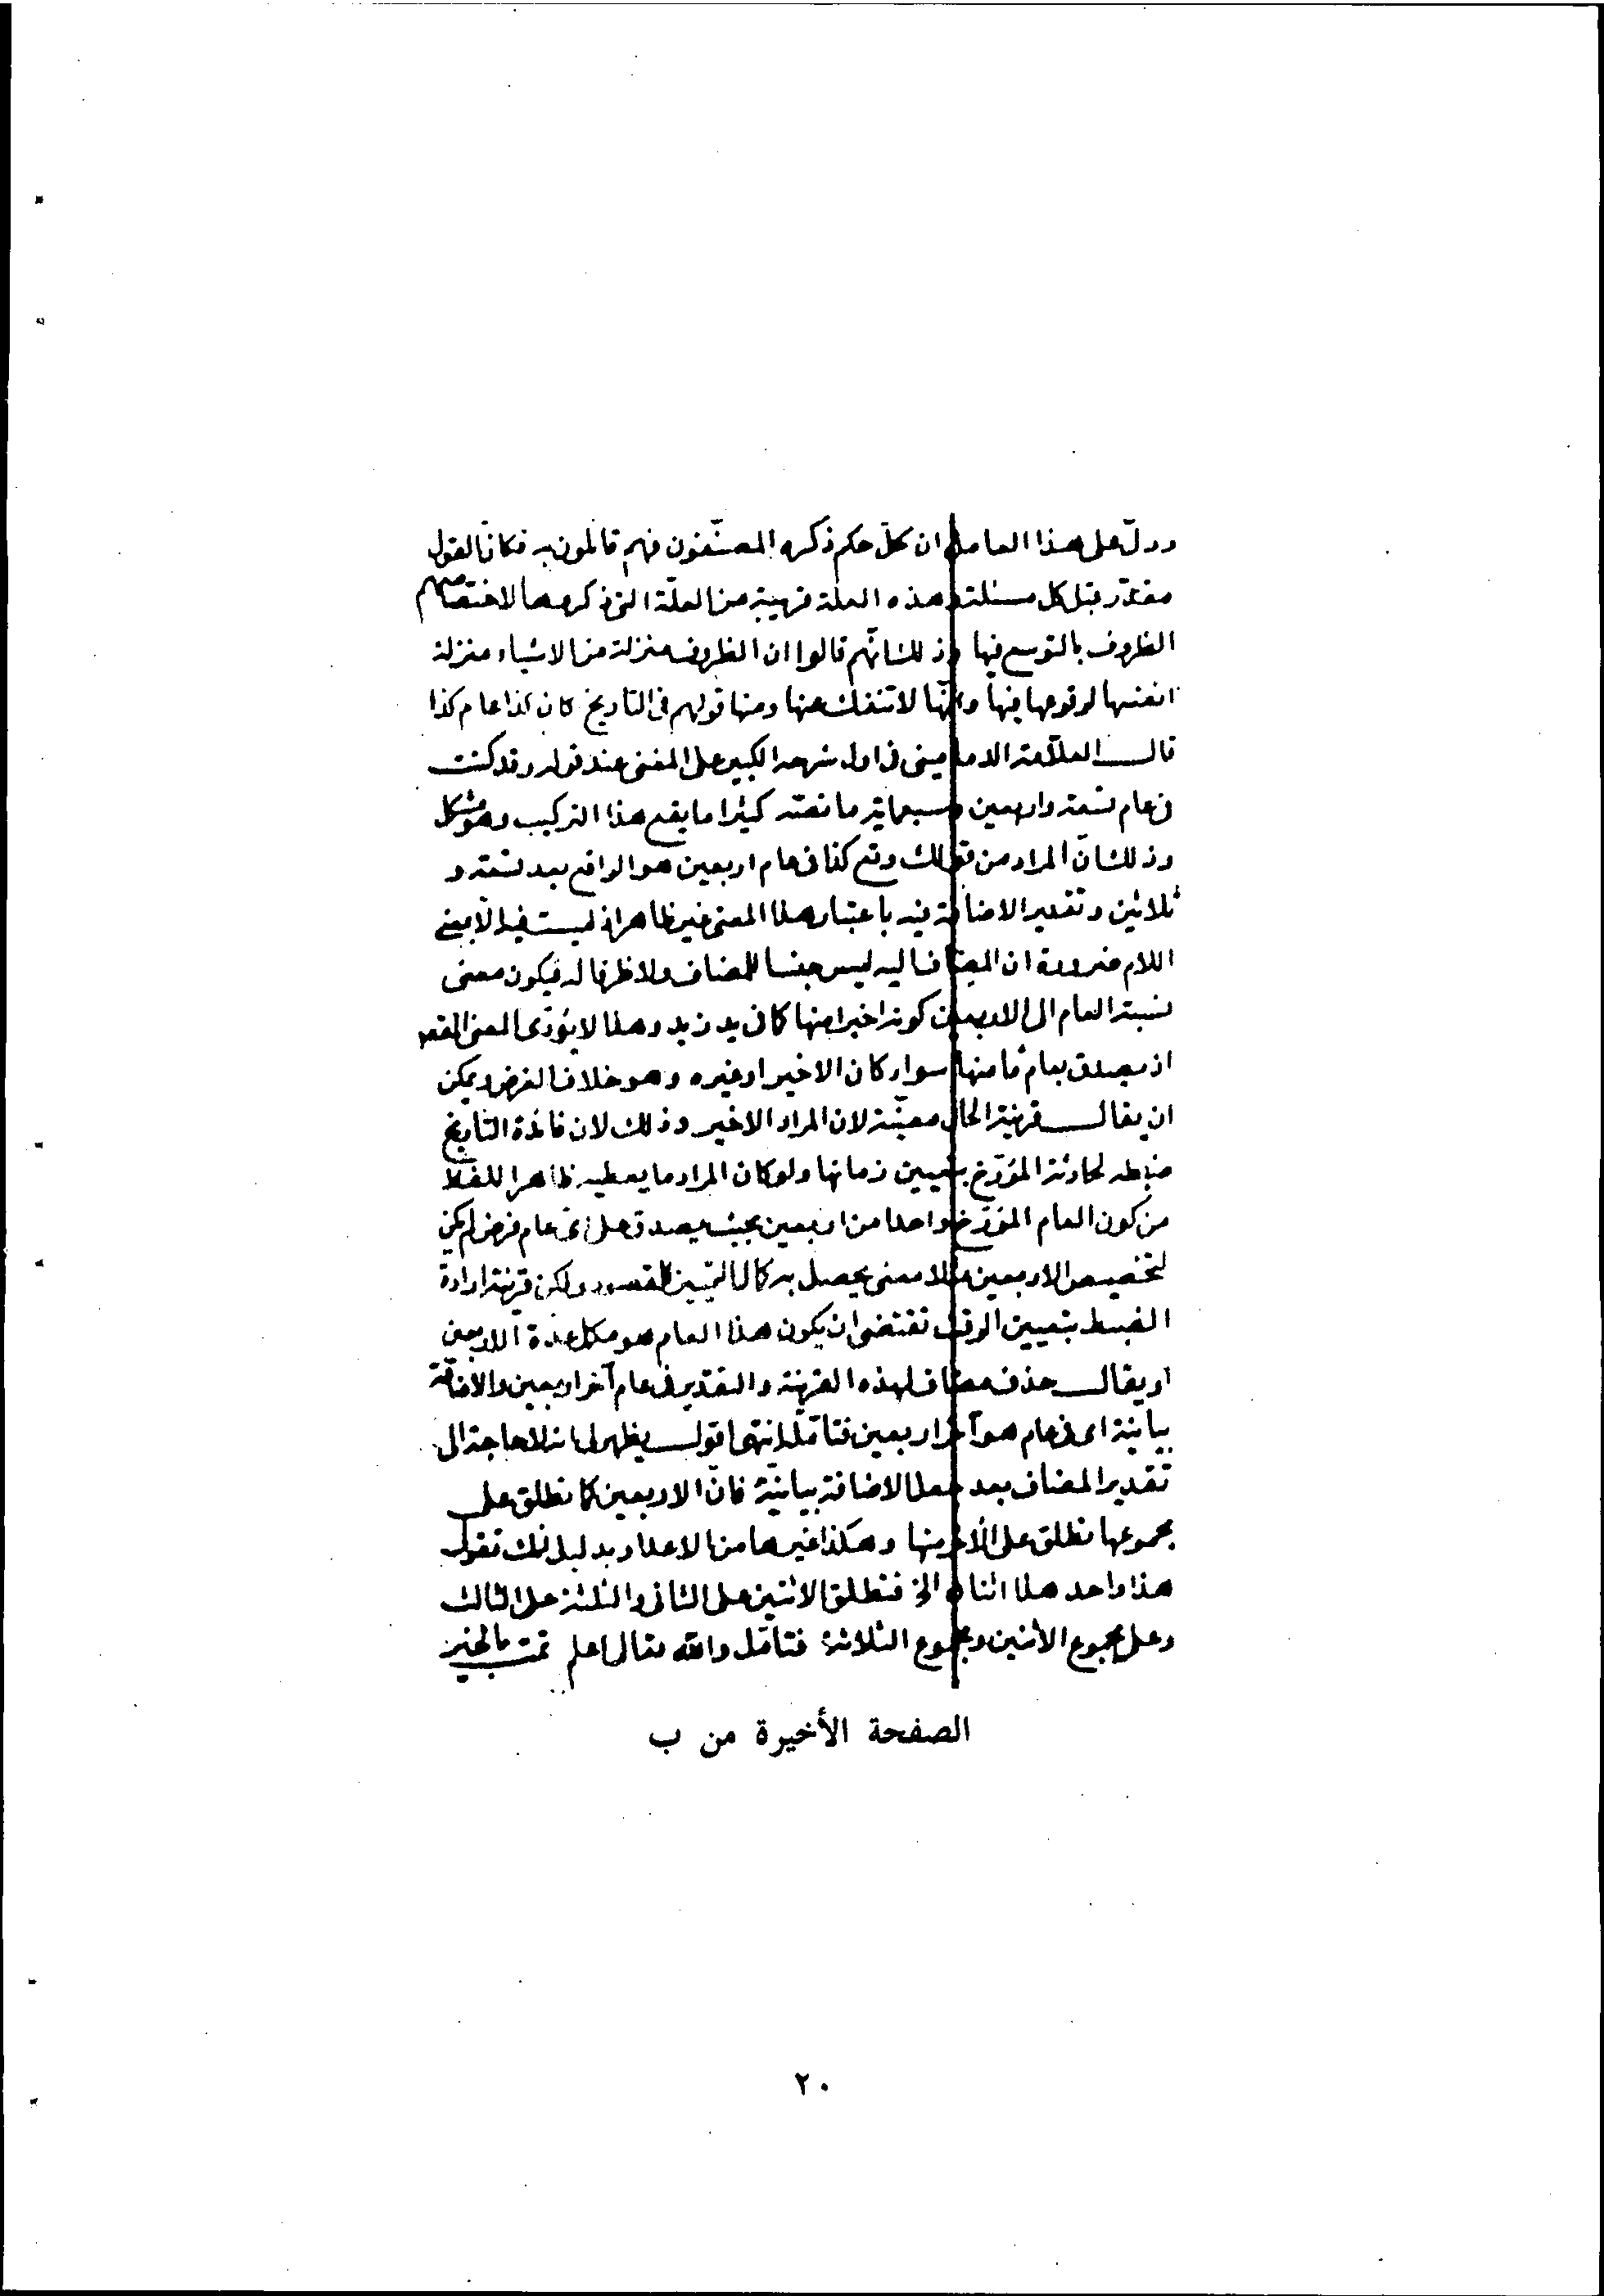 ودلّ على هذا العامل ان كلّ حكم ذكره المصنّفون فهم قائلون به فكانّ القول
مقدّر قبل كل مسئلة وهذه العلة قريبة من العلّة التى ذكرها لاختصاصهم
الظروف بالتوسع فيها وذلك انّهم قالوا ان الظروف منزلة من الاشياء منزلة
انفسها لوقوعها فيها وانّها لا تنفك عنها ومنها قولهم فى التاريخ كان كذا عام كذا
قال العلاّمة الدمامينى فى اول شرحه الكبير على المغنى عند قوله وقد كنت
فى عام تسعة واربعين وسبعماية ما نصّه كثيرا ما يقع هذا التركيب وهو مشكل
وذلك انّ المراد من قولك وقع كذا فى عام اربعين هو الواقع بعد تسعة و
ثلاثين وتقدير الاضافة فيه باعتبار هذا المعنى غير ظاهر اذ ليست فيه الّا بمعنى
اللام ضرورة ان المضاف اليه ليس جنسا للمضاف ولا ظرفا له فيكون معنى
نسبة العام الى الاربعين كونه اخيرا منها كما فى يد زيد وهذا لا يؤدّى المعنى المقصـ
اذ يصدق بعام مّا منها سواء كان الاخير او غيره وهو خلاف الغرض ويمكن
ان يقال قرينة الحال معيّنة لان المراد الاخير وذلك لان فائدة التاريخ
ضبط لحادثة المؤرّخ بتعيين زمانها ولو كان المراد ما يعطيه ظاهر اللفظ
من كون العام المؤرّخ واحدا من اربعين بحيث يصدق على اىّ عام فرض لم يكن
لتخصيص الاربعين مثلا معنى يحصل به كمال التمييز للمقصود ولكن قرينة ارادة
الضبط بتعيين الوقت تقتضى ان يكون هذا العام هو مكمل عدة الاربعين
او يقال حذف مضاف لهذه القرينة والتقدير فى عام آخر اربعين والاضافة
بيانية اى فى عام هو آخر اربعين فتأمّله انتهى اقول يظهر لى انه لا حاجة الى
تقدير المضاف بعد جعل الاضافة بيانيّة فانّ الاربعين كما تطلق على
مجموعها تطلق على الآخر منها وهكذا غيرها من الاعداد بدليل انك تقول
هذا واحد هذا اثنان الخ فتطلق الاثنين على الثانى والثلثة على الثالث
وعلى مجموع الاثنين ومجموع الثلاثة فتأمّل والله تعالى اعلم تمت بالخير
الصفحة الأخيرة من ب
٢٠